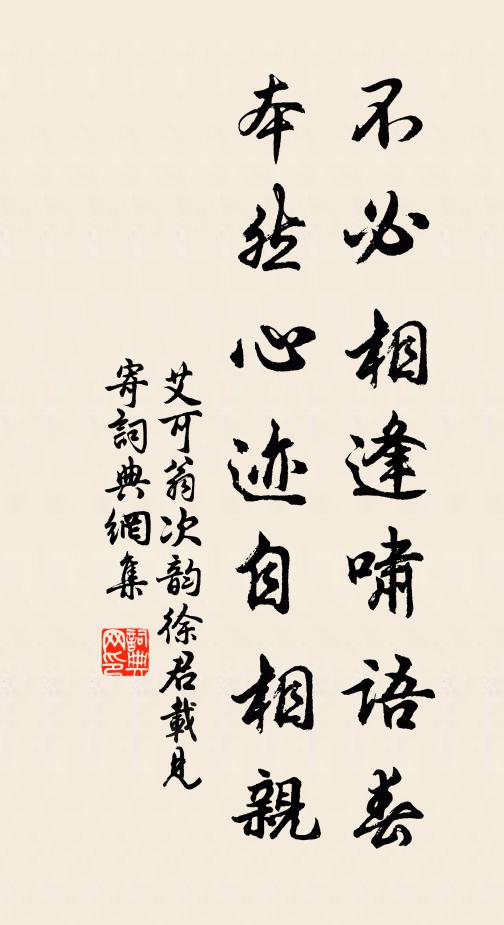 不必相逢啸語春
本然心迹自相親
艾可翁次韵徐君載見
寄詞典網集
詞典网印